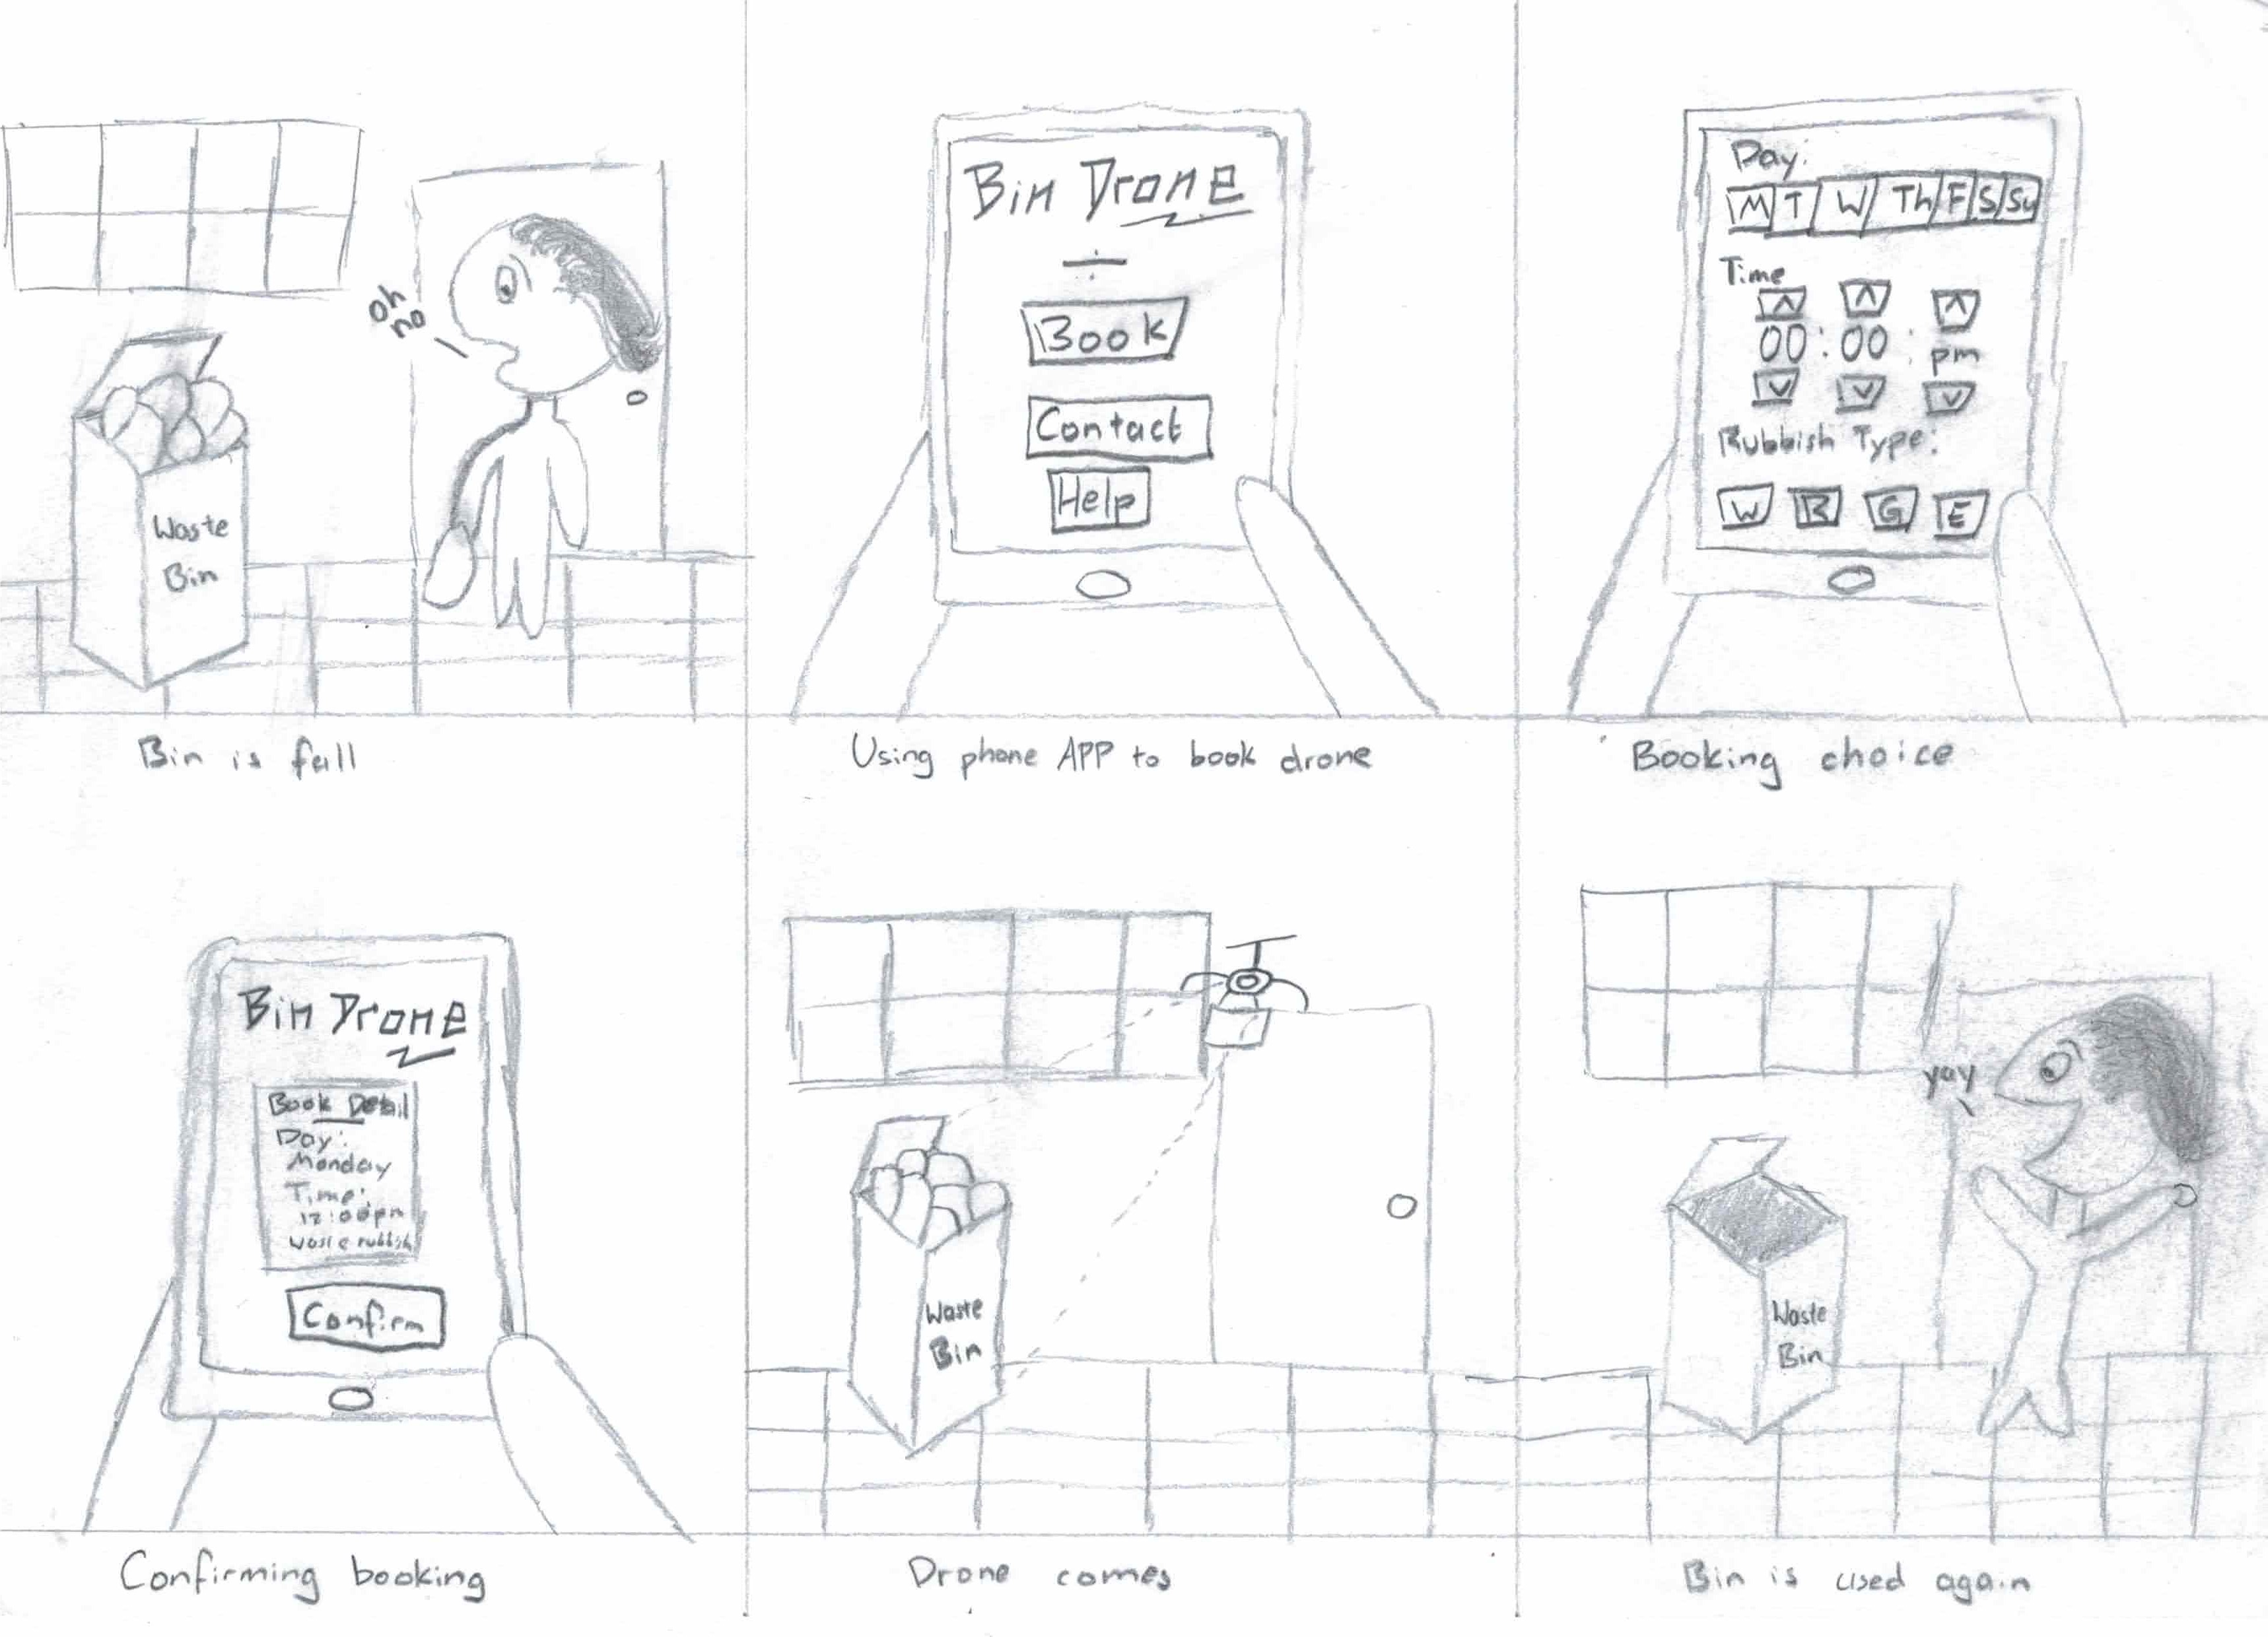 oh
no
Waste
Bin
Bin is full
Bin Drone
Book
Contact
Help
Using phone APP to book drone
Day:
M T W Th F S Su
Time
00:00: pm
Rubbish Type:
W R G E
Booking choice
Bin Drone
Book Detail
Day:
Monday
Time:
12:00pm
Waste rubbish
Confirm
Confirming booking
Waste
Bin
Drone comes
yay
Waste
Bin
Bin is used again